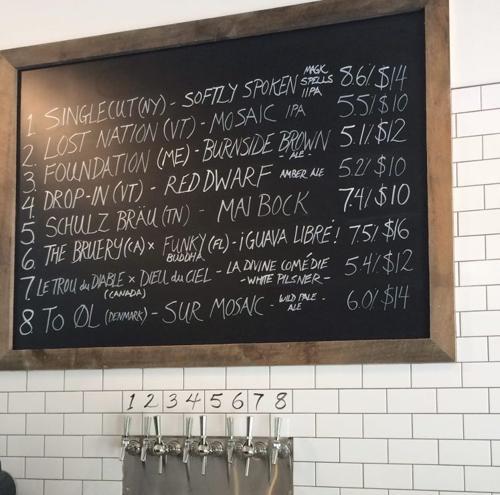 1. SINGLECUT (NY) - SOFTLY SPOKEN MAGIC SPELLS IIPA 8.6% $14
2. LOST NATION (VT) - MOSAIC IPA 5.5% $10
3. FOUNDATION (ME) - BURNSIDE BROWN - ALE - 5.1% $12
4. DROP-IN (VT) - RED DWARF AMBER ALE 5.2% $10
5. SCHULZ BRÄU (TN) - MAI BOCK 7.4% $10
6. THE BRUERY (CA) × FUNKY BUDDHA (FL) - ¡GUAVA LIBRÉ! 7.5% $16
7. LE TROU du DIABLE × DIEU du CIEL (CANADA) - LA DIVINE COMÉDIE - WHITE PILSNER - 5.4% $12
8 TO ØL (DENMARK) - SUR MOSAIC - WILD PALE ALE - 6.0% $14
1 2 3 4 5 6 7 8